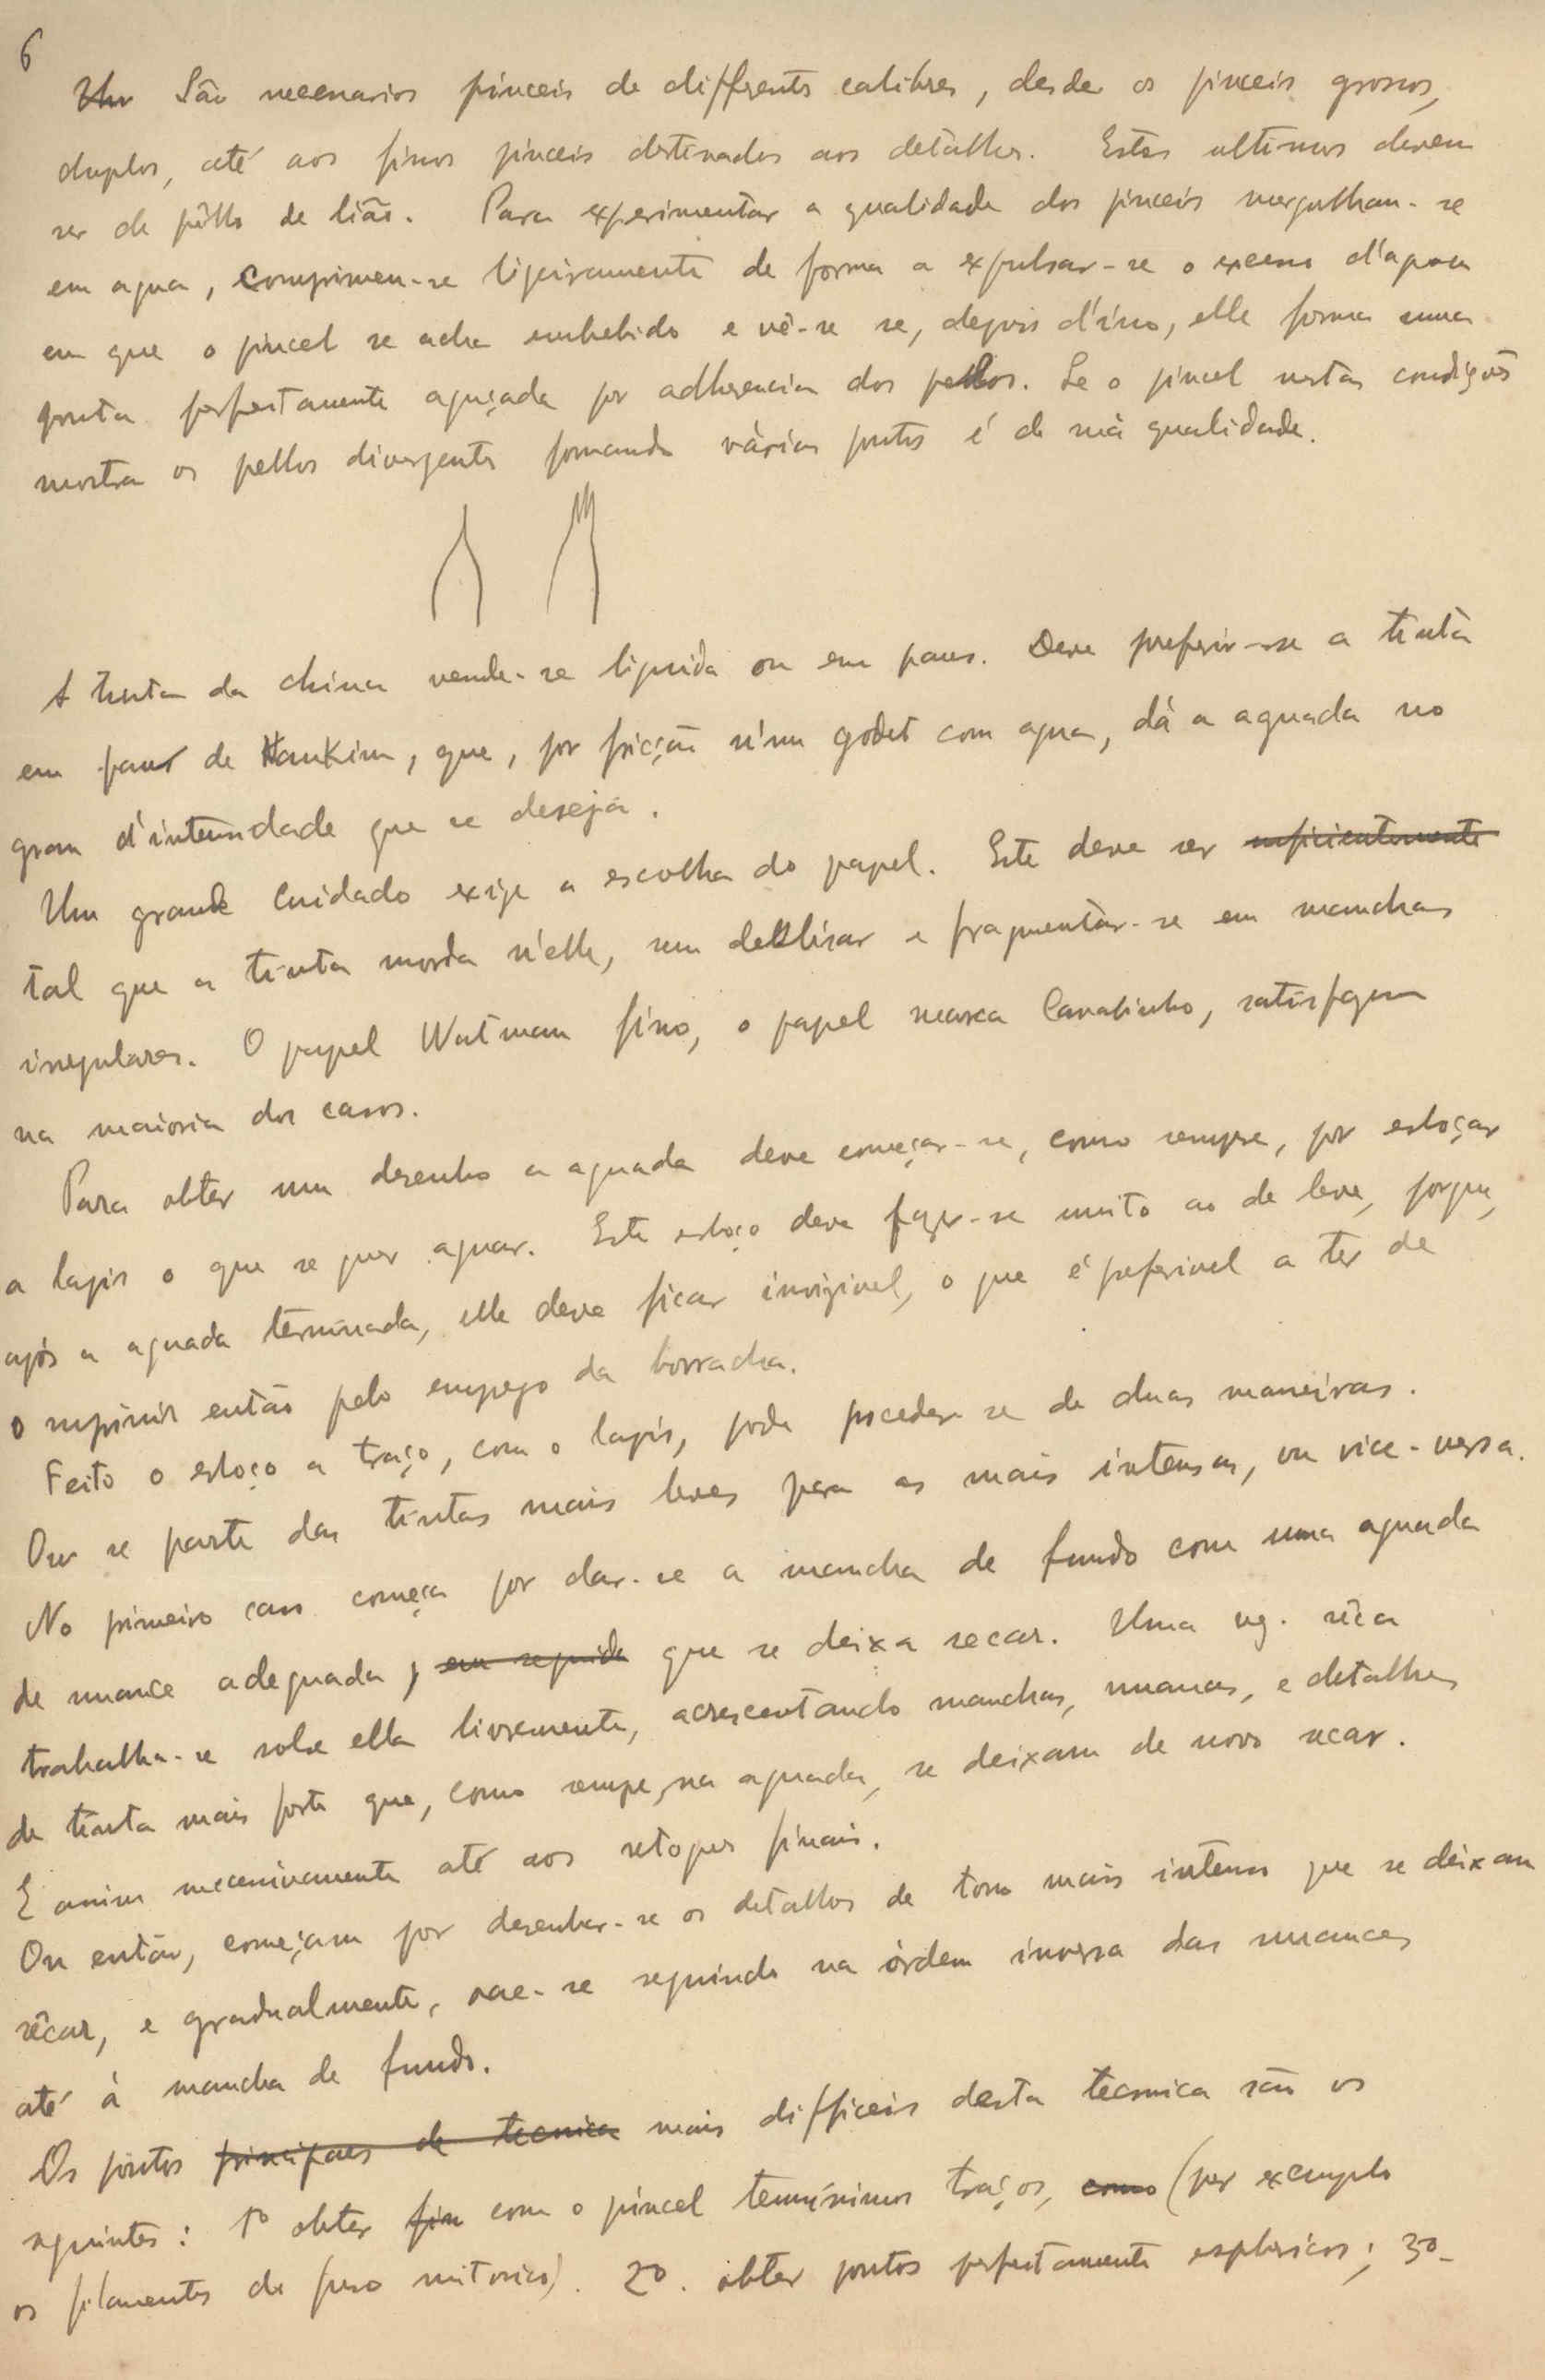 6
Um São necessarios pinceis de differents calibres, desde os pinceis grossos,
duplos, até aos finos pinceis destinados aos detalhes. Estes ultimos devem
ser de pêllo de lião. Para experimentar a qualidade dos pinceis mergulham-se
em agua, comprimem-se ligeiramente de forma a expulsar-se o excesso d'agua
em que o pincel se acha embebido e vê-se se, depois d'isso, elle forma uma
ponta perfeitamente aguçada por adherencia dos pellos. Se o pincel nestas condições
mostra os pellos divergentes formando várias pontas é de má qualidade.
A tinta da china vende-se liquida ou em paus. Deve preferir-se a tinta
em paus de Nankim, que, por fricção n'um godet com agua, dá a aguada no
grau d'intensidade que se deseja.
Um grande cuidado exige a escolha do papel. Este deve ser sufficientemente
tal que a tinta morda n'elle, sem deslisar e fragmentar-se em manchas
irregulares. O papel Watman fino, o papel marca Cavalinho, satisfazem
na maioria dos casos.
Para obter um desenho a aguada deve começar-se, como sempre, por esboçar
a lapis o que se quer aguar. Este esboço deve fazer-se muito ao de leve, porque,
após a aguada terminada, elle deve ficar invizivel, o que é preferivel a ter de
o suprimir então pelo emprego da borracha.
Feito o esboço a traço, com o lapis, pode proceder-se de duas maneiras.
Ou se parte das tintas mais leves para as mais intensas, ou vice-versa.
No primeiro caso começa por dar-se a mancha de fundo com uma aguada
de nuance adequada, em seguida que se deixa secar. Uma vez sêca
trabalha-se sobre ella livremente, acrescentando manchas, nuances, e detalhes
de tinta mais forte que, como sempre, na aguada, se deixam de novo secar.
E assim sucessivamente até aos retoques finais.
Ou então, começam por desenhar-se os detalhes de tom mais intenso que se deixam
sêcar, e gradualmente, vae-se seguindo na órdem inversa das nuances
até á mancha de fundo.
Os pontos principaes de tecnica mais difficeis desta tecnica são os
seguintes: 1º obter fin com o pincel tenuissimos traços, como (por exemplo
os filamentos do fuso mitosico). 2º. obter pontos perfeitamente esphericos; 3º-